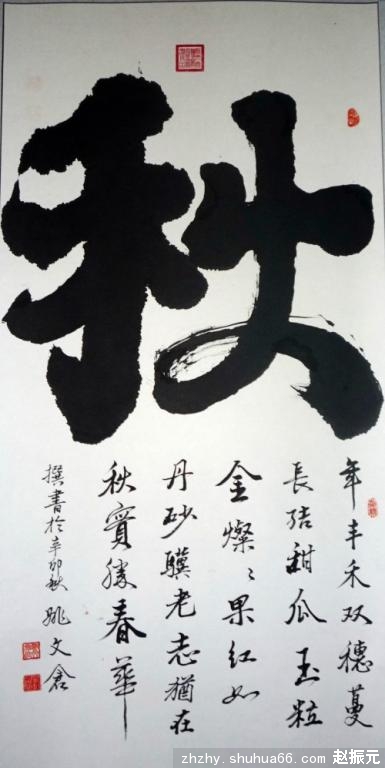 秋
年丰禾双穗蔓
長结甜瓜玉粒
金燦〻果红如
丹砂驥老志猶在
秋實勝春華
撰書於辛卯秋 姚文倉
zhzhy.shuhua66.com 赵振元